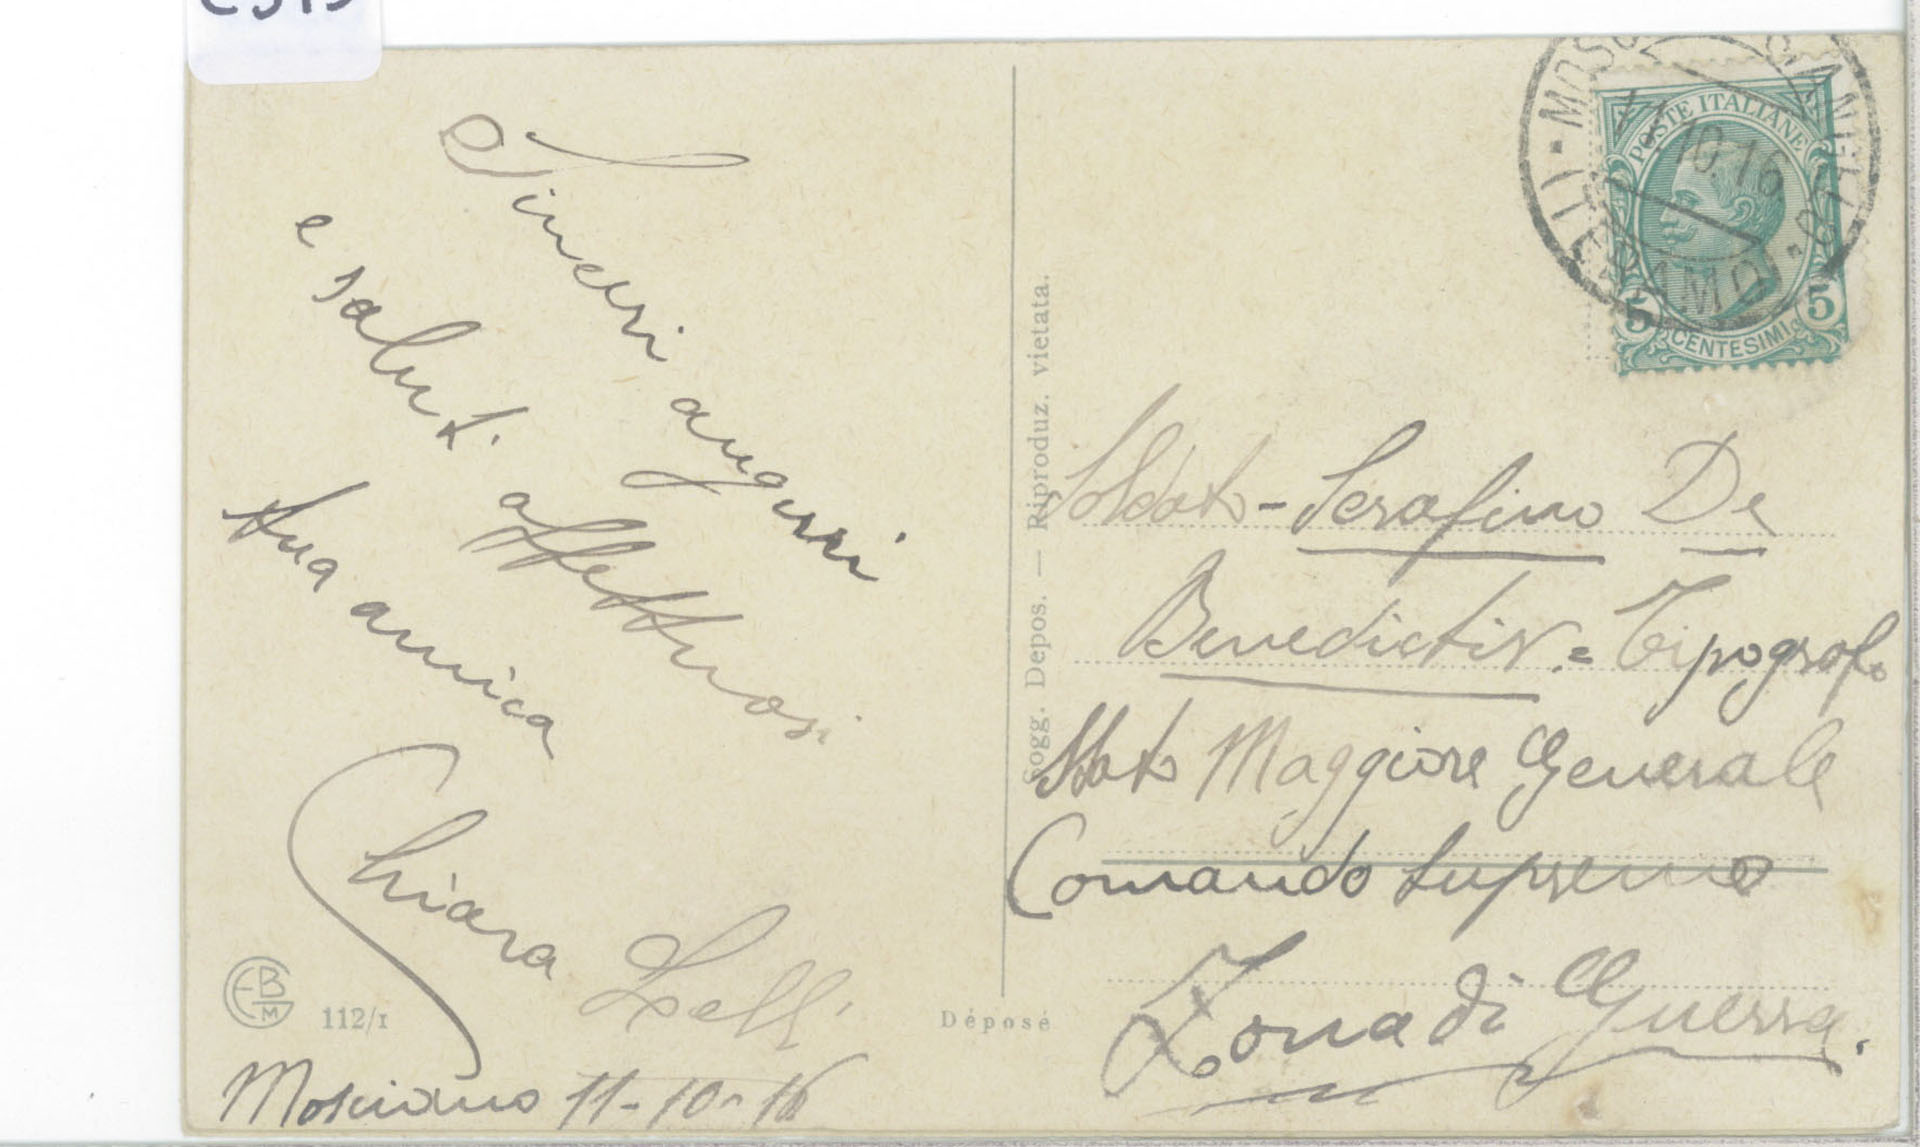 Sinceri auguri
e saluti affettuosi
tua amica
Chiara Lelli
Mosciano 11-10-16
EBM
112/1
Déposé
Sogg. Depos. — Riproduz. vietata.
MOSCIANO S. ANGELO
(TERAMO)
11.10.16
POSTE ITALIANE
5 CENTESIMI 5
Soldato - Serafino De
Benedictis = Tipografo
Stato Maggiore Generale
Comando Supremo
Zona di Guerra.